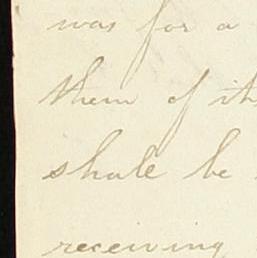 was for a
them of
shale be
receiving